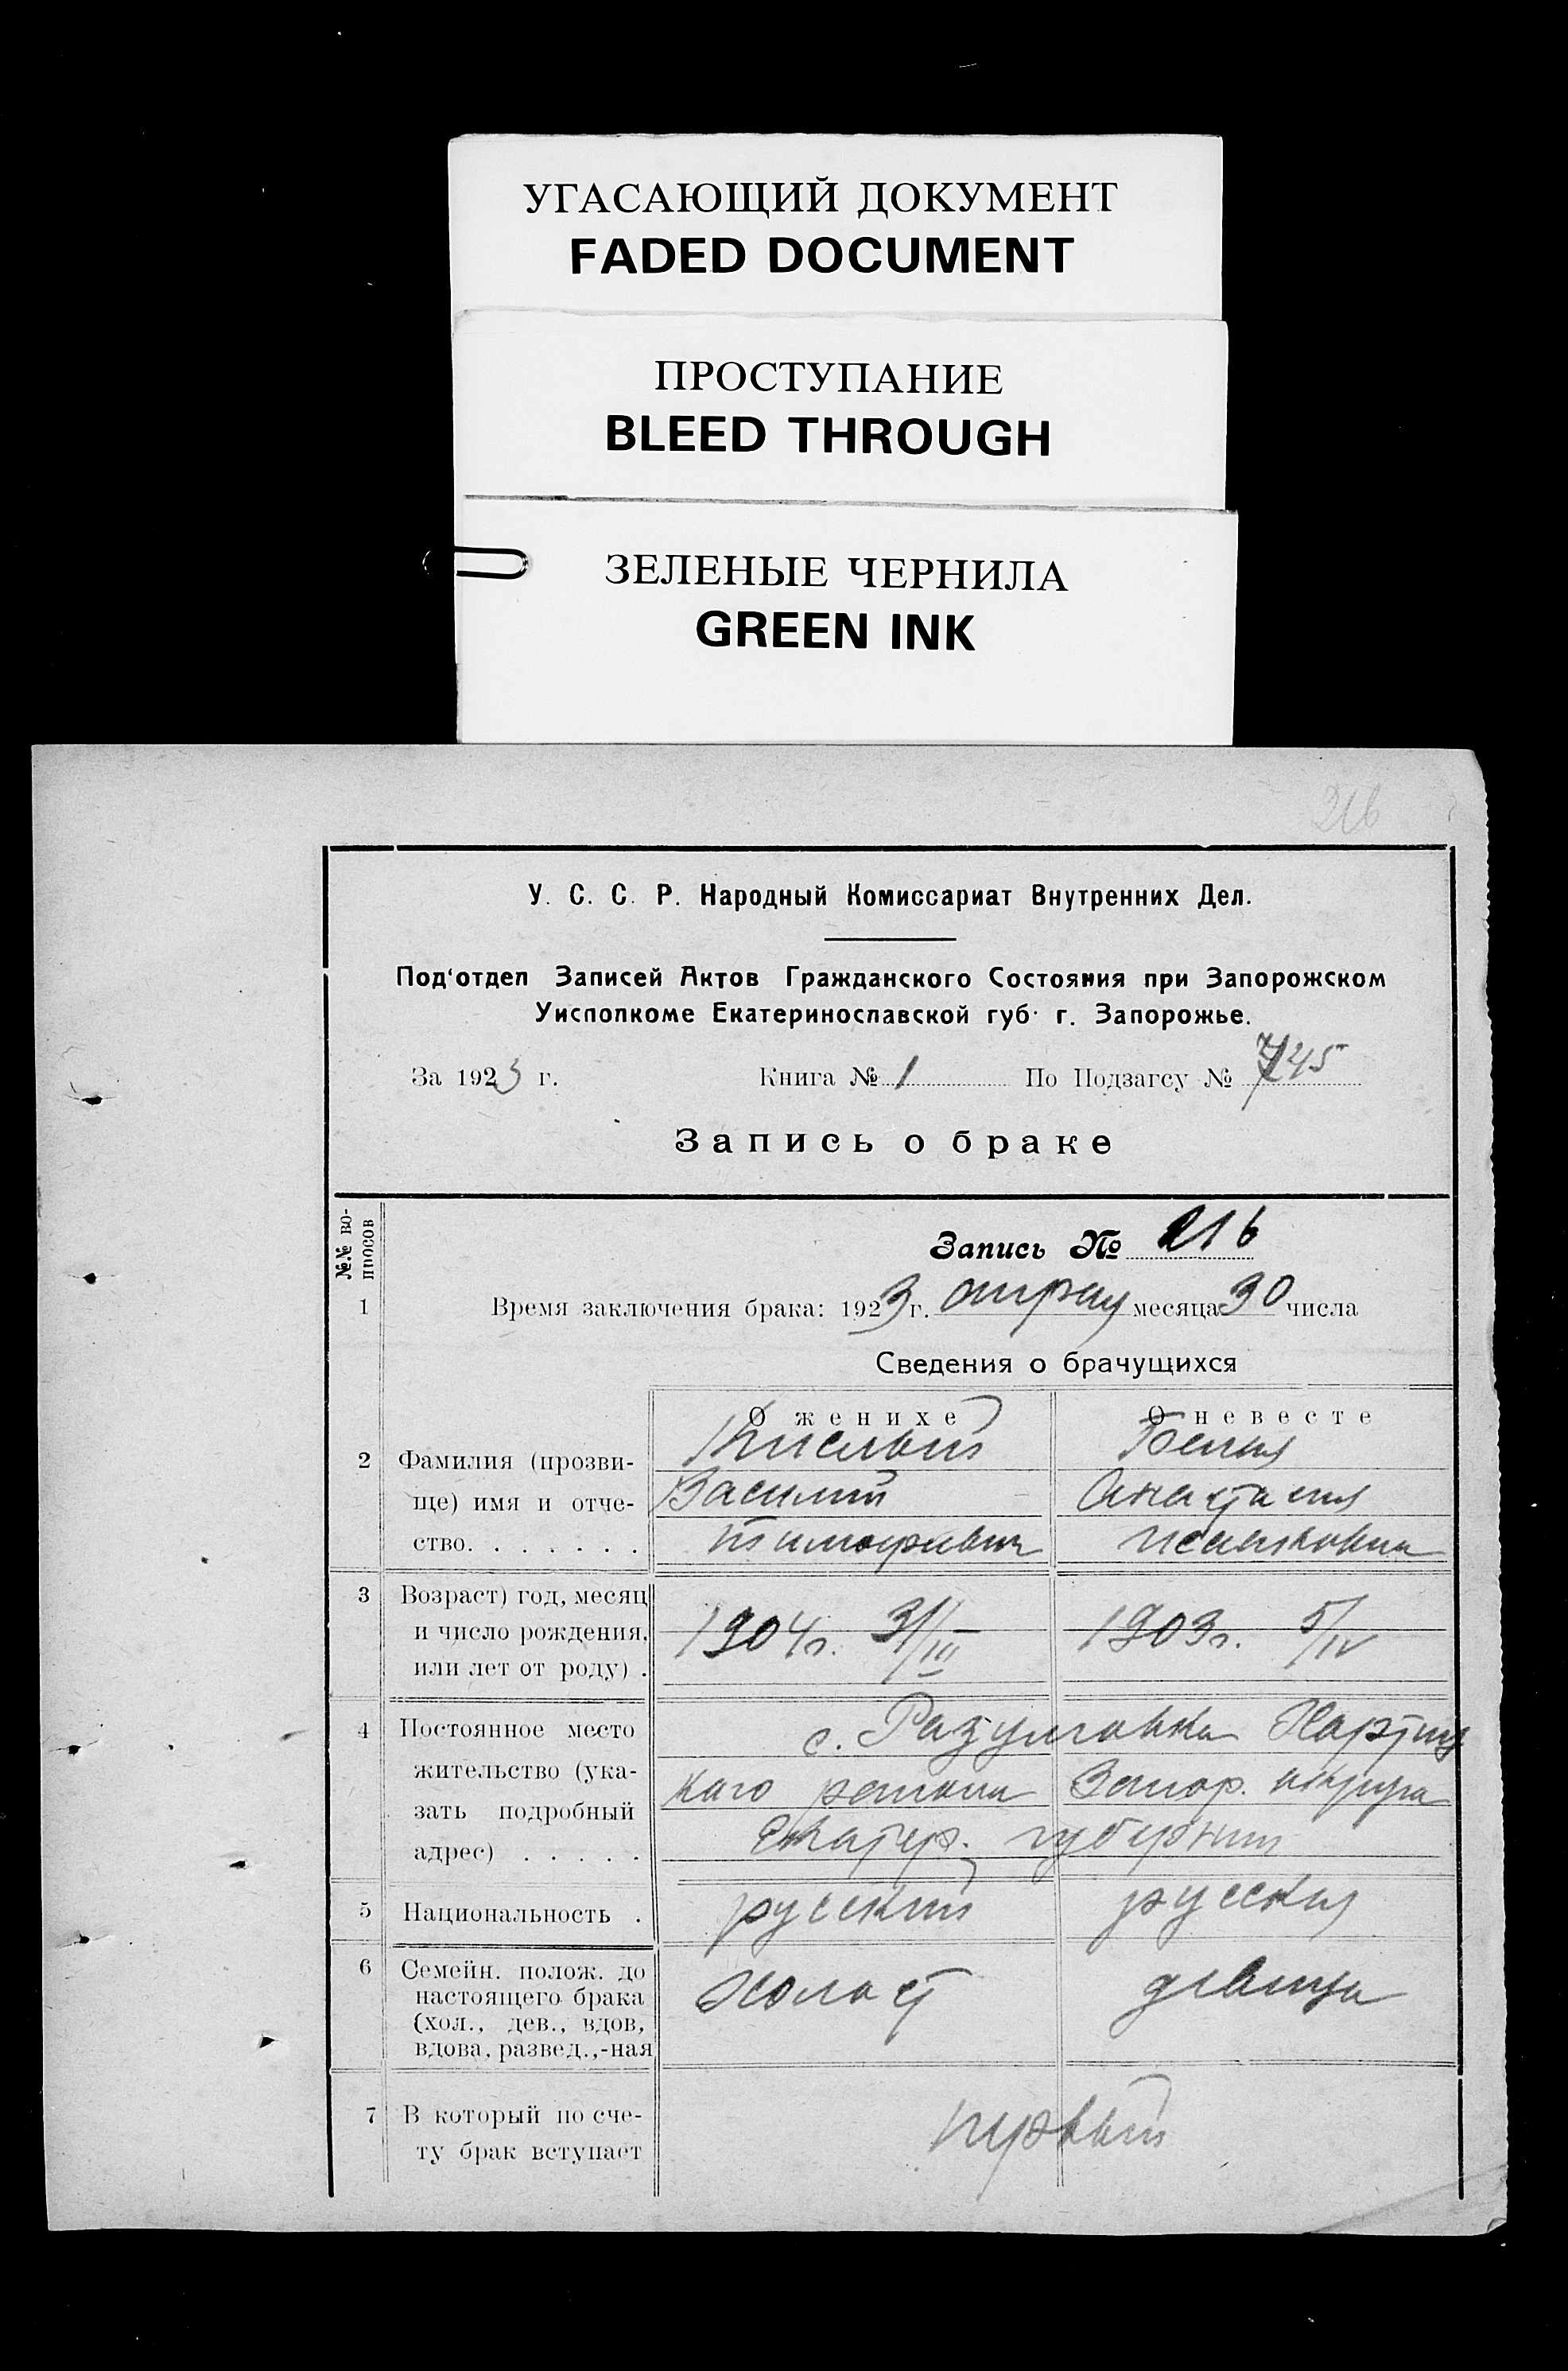 УГАСАЮЩИЙ ДОКУМЕНТ
FADED DOCUMENT
ПРОСТУПАНИЕ
BLEED THROUGH
ЗЕЛЕНЫЕ ЧЕРНИЛА
GREEN INK
216
У. С. С. Р. Народный Комиссариат Внутренних Дел.
Под‘отдел Записей Актов Гражданского Состояния при Запорожском
Уисполкоме Екатеринославской губ. г. Запорожье.
За 1923 г. Книга № 1 По Подзагсу № 745
Запись о браке
№№ во-
просов
Запись № 216
1 Время заключения брака: 1923 г. апреля месяца 30 числа
Сведения о брачущихся
О женихе О невесте
2 Фамилия (прозви- Кислый Белая
ще) имя и отче- Василий Анастасия
ство. . . . . . . Тимофеевич
3 Возраст) год, месяц
и число рождения, 1904 г. 31/III 1903 г. 5/IV
или лет от роду) .
4 Постоянное место с. Разумовка
жительство (ука- каго района Запор. округа
зать подробный Екатер. губернии
адрес) . . . . .
5 Национальность . русский русская
6 Семейн. полож. до холост девица
настоящего брака
(хол., дев., вдов,
вдова, развед.,-ная
7 В который по сче- первый
ту брак вступает